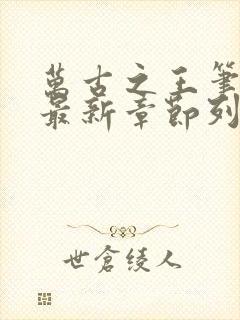 萬古之王筆
最新章節列
世倉綾人